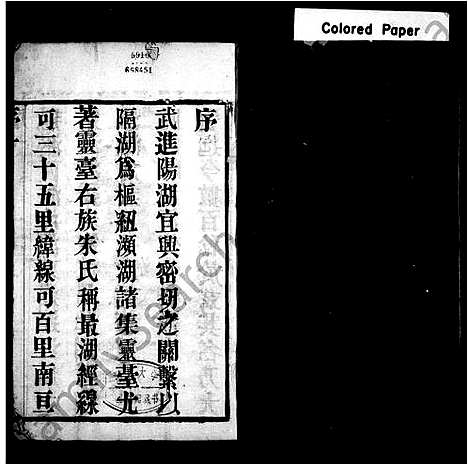 Colored Paper
序
武進陽湖宜興密切之關繫以
隔湖爲樞紐瀕湖諸集靈臺尤
著靈臺右族朱氏稱最湖經線
可三十五里緯線可百里南亘
familysearch